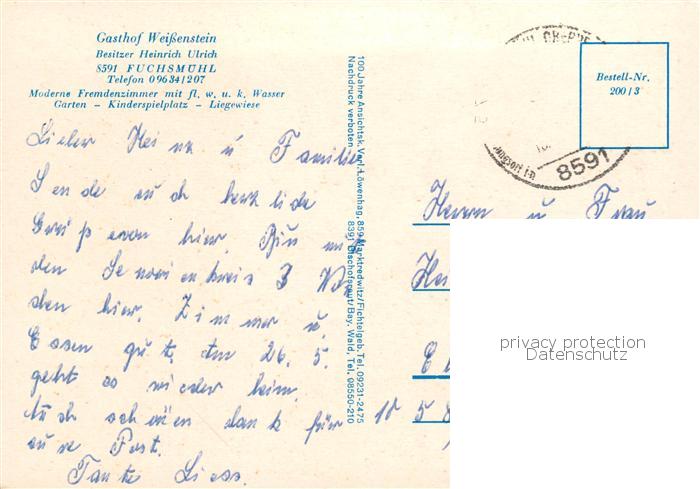 Gasthof Weißenstein
Besitzer Heinrich Ulrich
8591 FUCHSMÜHL
Telefon 09634/207
Moderne Fremdenzimmer mit fl. w. u. k. Wasser
Garten – Kinderspielplatz – Liegewiese
Lieber Heinz u Familie
Sende euch herzliche
Grüße von hier. Bin mit
den Seniorenkreis 3 Wo
chen hier. Zimmer u.
Essen gut. Am 26. 5.
geht es wieder heim.
Auch schönen dank für
eure Post.
Tante Liess.
100 Jahre Ansichtsk.-Verl. Löwenhag, 859 Marktredwitz/Fichtelgeb. Tel. 09231-2475
Nachdruck verboten 8391 Bischofsreut/Bay. Wald, Tel. 08550-210
8591
Bestell-Nr.
200/3
Herrn u Frau
Hei
10 5 8
privacy protection
Datenschutz